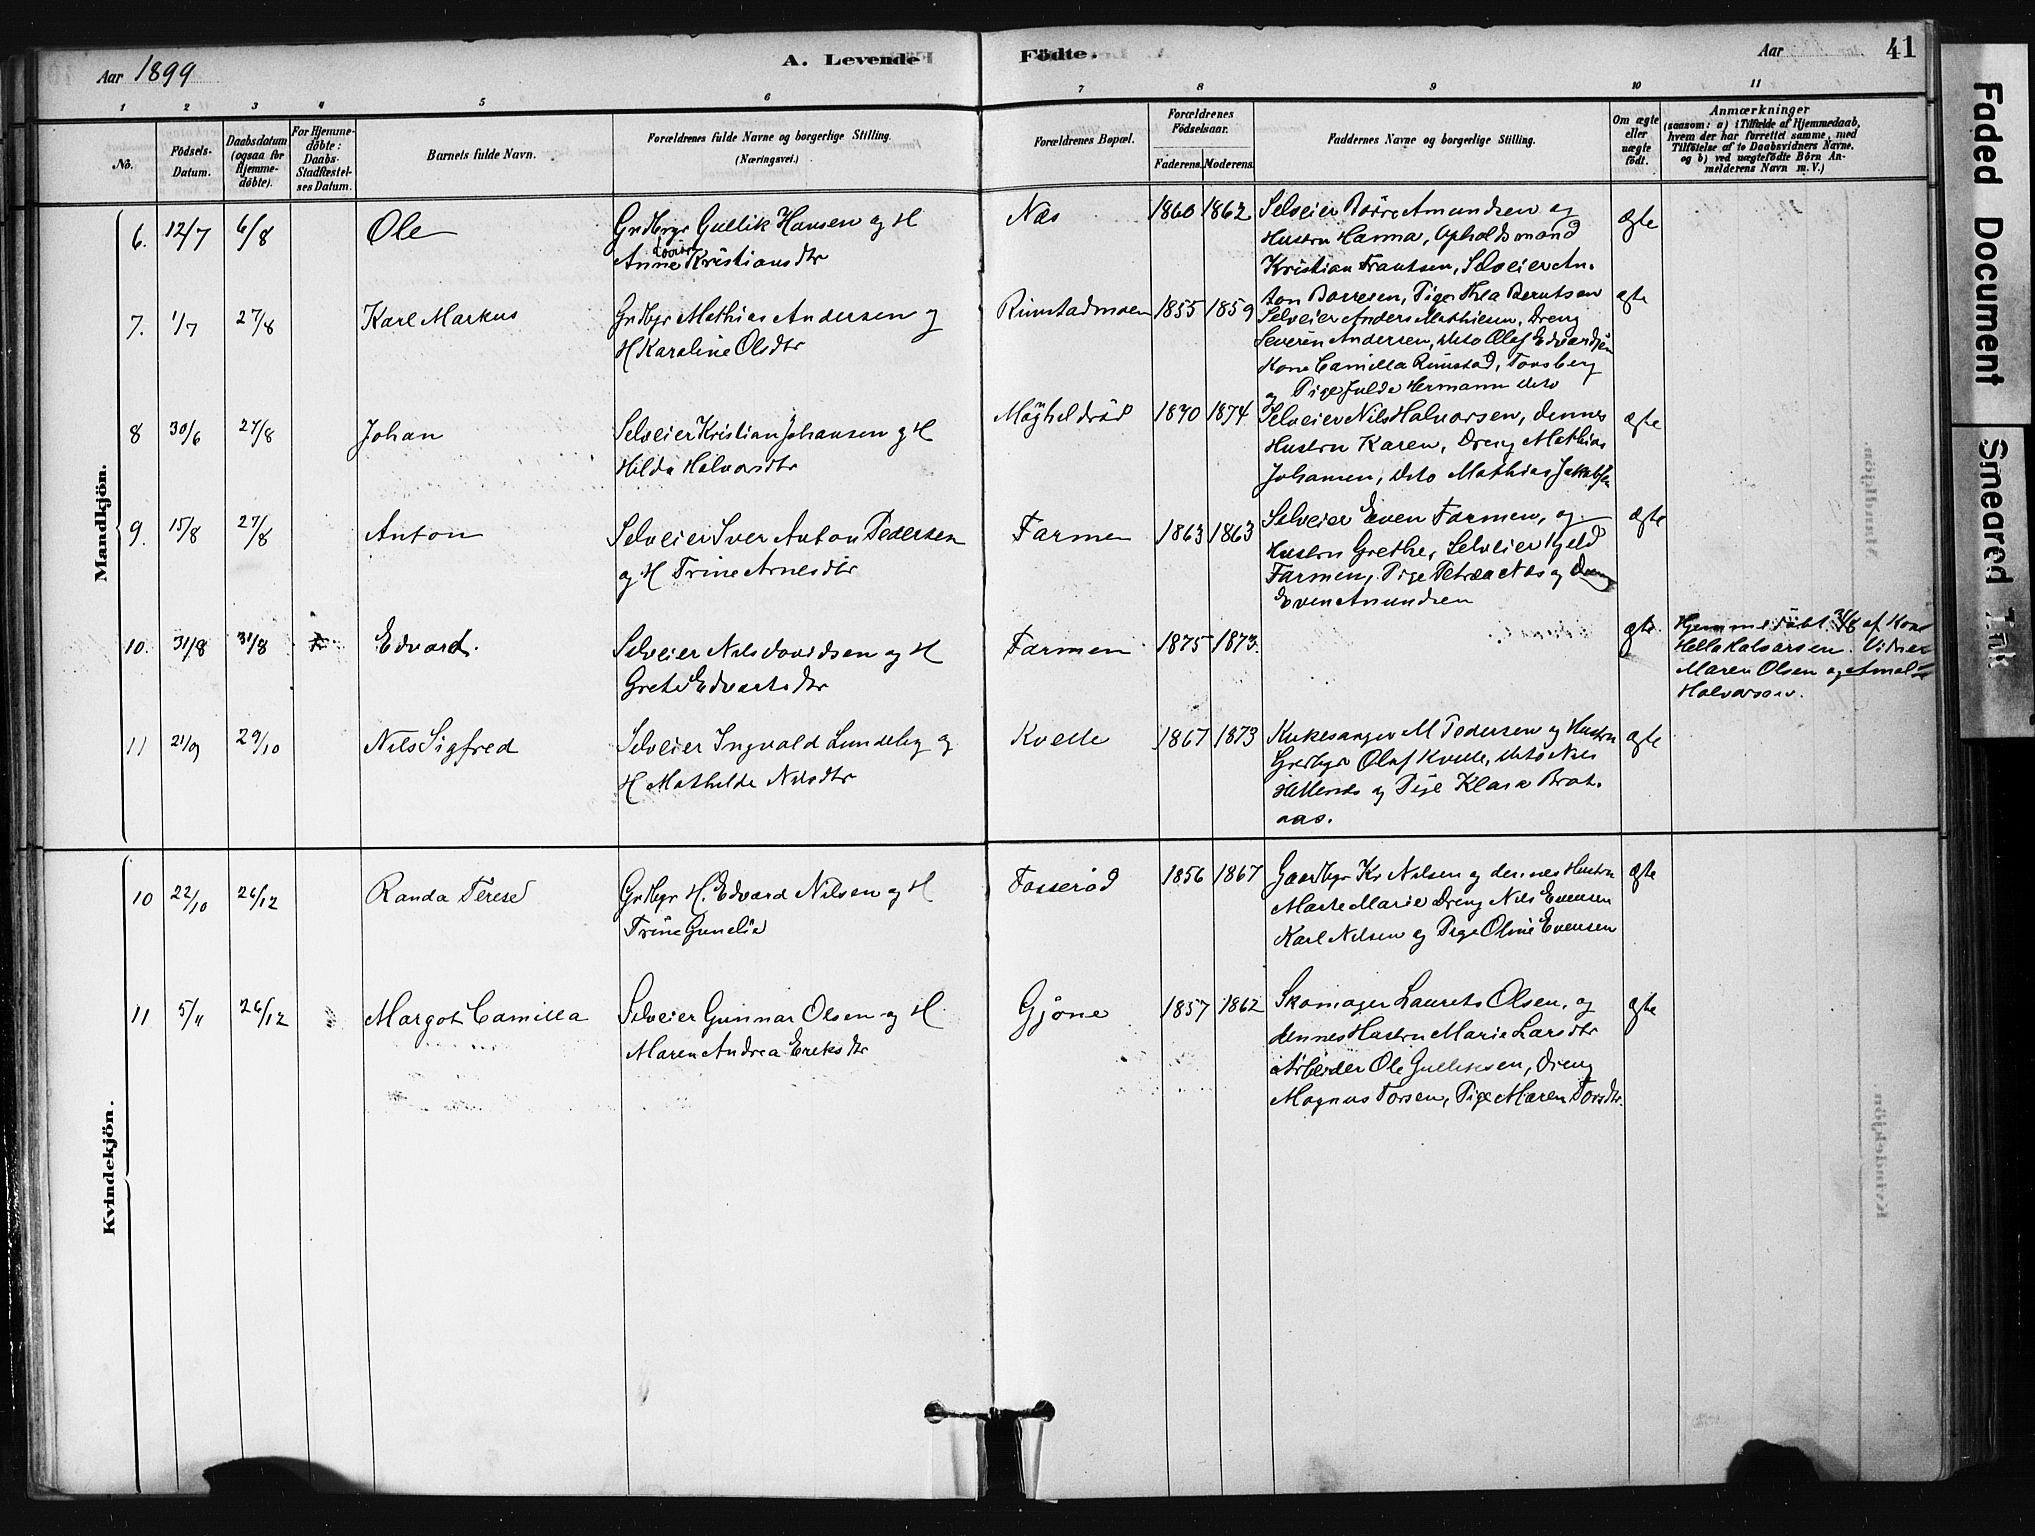 Aar 1899
A. Levende
Födte.
Aar
41
1
2
3
4
5
6
7
8
9
10
11
No.
Födsels-
Datum.
Daabsdatum
(ogsaa for
Hjemme-
döbte).
For Hjemme-
döbte:
Daabs-
Stadfæstel-
ses Datum.
Barnets fulde Navn.
Forældrenes fulde Navne og borgerlige Stilling.
(Næringsvei.)
Forældrenes Bopæl.
Forældrenes
Födselsaar.
Faderens.
Moderens.
Faddernes Navne og borgerlige Stilling.
Om ægte
eller
uægte
födt.
Anmærkninger
(saasom: a) i Tilfælde af Hjemmedaab,
hvem der har forrettet samme, med
Tilföielse af to Daabsvidners Navne,
og b) ved uægtefödte Börn An-
melderens Navn m. V.)
Mandkjön.
6. 12/7 6/8 Ole
Grdbrgr Gullik Hansen og H
Anne Kristiansdtr
Næs 1860 1862
Selveier Börre Amundsen og
Hustru Hanna, Opholdsmand
Kristian Frantsen, Selveier An-
ton Borresen, Pige Thea Berntsen
ægte
7. 1/7 27/8 Karl Markus
Grdbgr Mathias Andersen og
H Karoline Olsdtr
Rimstadmoen 1855 1859
Selveier Anders Mathisen, Dreng
Severin Andersen, dito Olaf Edvardsen
Kone Camilla Rimstad, Tonsberg
og Pige Julda Hermansen dito
ægte
8 30/6 27/8 Johan
Selveier Kristian Johansen og H
Hilda Halvorsdtr
1870 1874
Selveier Nils Halvorsen, dennes
Hustru Karen, Dreng Mathias
Johansen, dito Mathias Jakobsen
ægte
9. 15/8 27/8 Anton
Selveier Iver Anton Pedersen
og H Trine Arnesdtr
Farmen 1863 1863
Selveier Even Farmen, og
Hustru Grethe, Selveier Kjeld
Farmen, Pige Petrea Næs og Dreng
Even Amundsen
ægte
10. 31/8 31/8 Edvard.
Selveier Nils Davidsen og H
Grete Edvartsdtr
Farmen 1875 1873.
ægte
Hjemmedöbt 31/8 af Kone
Helle Halvorsen. Vidner
Maren Olsen og Amalie
Halvorsen.
11 21/9 29/10 Nils Sigfred
Selveier Ingvald Lundeby og
H Mathilde Nilsdtr
Kvelle 1867 1873
Kirkesanger M Pedersen og Hustru
Grdbgr Olaf Kvelle, dito Nils
og Pige Klara Brat-
aas.
ægte
Kvindekjön.
10 22/10 26/12 Randa Terese
Grdbgr H. Edvard Nilsen og H
Trine Gunelie
Fosserød 1856 1867
Gaardbgr Kr Nilsen og dennes Hustru
Marte Marie Dreng Nils Evensen
Karl Nilsen og Pige Oline Evensen
ægte
11 5/11 26/12 Margot Camilla
Selveier Gunnar Olsen og H
Maren Andrea Eriksdtr
Gjöne 1857 1862
Skomager Laurets Olsen, og
dennes Hustru Marie Larsdtr
Arbeider Ole Gulliksen, Dreng
Magnus Torsen, Pige Maren Torsdtr.
ægte
Faded Document
Smeared Ink